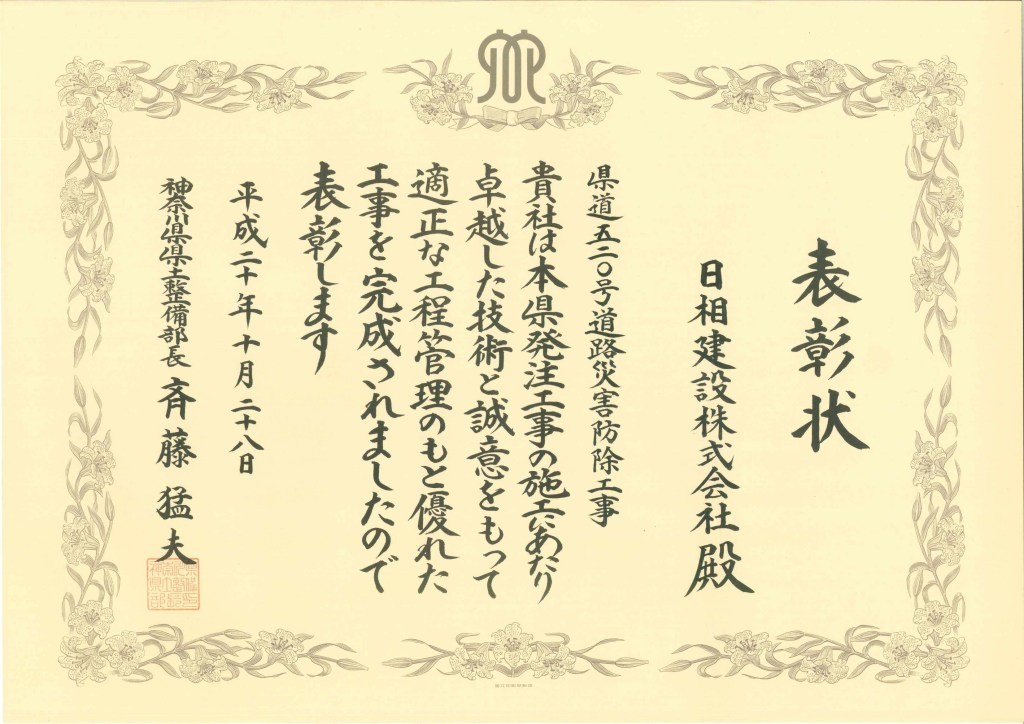 表彰状
日相建設株式会社殿
県道五二〇号道路災害防除工事
貴社は本県発注工事の施工にあたり
卓越した技術と誠意をもって
適正な工程管理のもと優れた
工事を完成されましたので
表彰します
平成二十年十月二十八日
神奈川県県土整備部長 斉藤猛夫